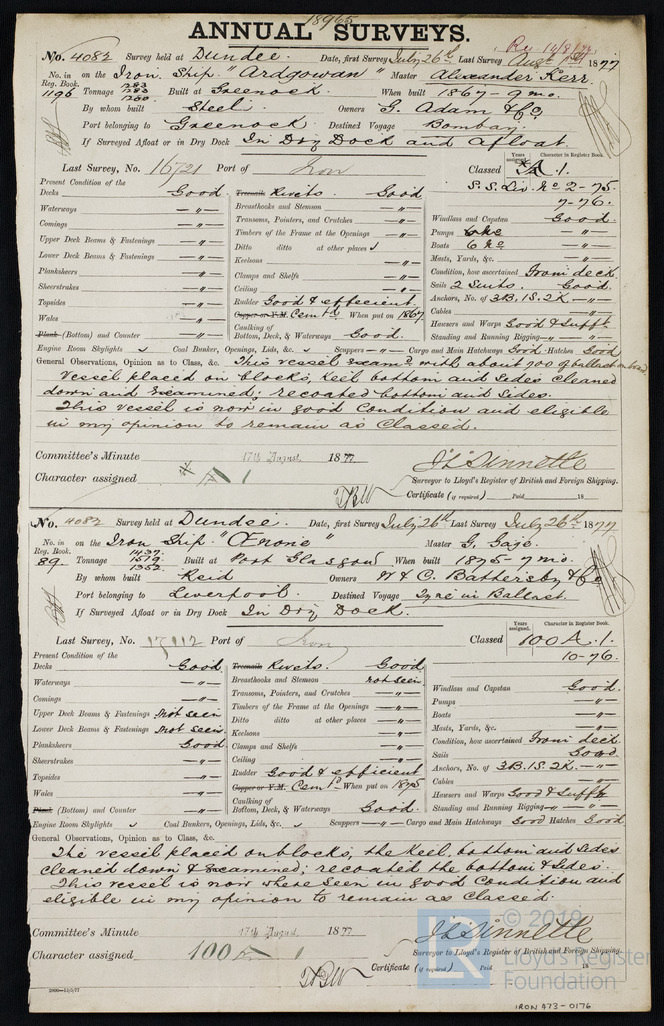 18965
ANNUAL SURVEYS.
Re 16/8/77
No. 4082 Survey held at Dundee. Date, first Survey July 26th Last Survey Augt 1877
No. in Reg. Book. on the Iron Ship "Ardgowan" Master Alexander Kerr.
1196 Tonnage 1283 1283 1200 Built at Greenock When built 1867-9 mo.
By whom built Steel Owners G. Adam & Co.
Port belonging to Greenock Destined Voyage Bombay.
If Surveyed Afloat or in Dry Dock In Dry Dock and afloat.
Last Survey, No. 16721 Port of Iron Classed Years assigned. Character in Register Book. A.1.
S.S. Liv. No 2-75
7-76.
Present Condition of the
Decks Good Treenails Rivets. Good
Waterways —"— Breasthooks and Stemson —"— Windlass and Capstan Good.
Comings —"— Transoms, Pointers, and Crutches —"— Pumps —"—
Upper Deck Beams & Fastenings —"— Timbers of the Frame at the Openings —"— Boats 6 No —"—
Lower Deck Beams & Fastenings —"— Ditto ditto at other places ✓ Masts, Yards, &c. —"—
Planksheers —"— Keelsons —"— Condition, how ascertained From deck.
Sheerstrakes —"— Clamps and Shelfs —"— Sails 2 Suits. Good.
Topsides —"— Ceiling —"— Anchors, No. of 3B.1S.2K. —"—
Wales —"— Rudder Good & effecient. Cables —"—
Plank (Bottom) and Counter —"— Copper or Y.M. Cemtd When put on 1867 Hawsers and Warps Good & Sufft.
Caulking of Bottom, Deck, & Waterways Good. Standing and Running Rigging —"—
Engine Room Skylights ✓ Coal Bunker, Openings, Lids, &c. ✓ Scuppers —"— Cargo and Main Hatchways Good Hatches Good
General Observations, Opinion as to Class, &c. This vessel examd with about 700 of ballast on board
Vessel placed on blocks, keel bottom and sides cleaned
down and examined; recoated bottom and sides.
This vessel is now in good Condition and eligible
in my opinion to remain as Classed.
Committee's Minute 17th August 1877
Character assigned A 1
J.L. Sinnette
Surveyor to Lloyd's Register of British and Foreign Shipping.
Certificate (if required) Paid 18
No. 4082 Survey held at Dundee. Date, first Survey July 26th Last Survey July 26th 1877
No. in Reg. Book. on the Iron Ship "Œnone" Master G. Gajé.
89. Tonnage 1437. 1519. 1352. Built at Port Glasgow When built 1875-7 mo.
By whom built Reid Owners W & C. Battersby & Co
Port belonging to Liverpool. Destined Voyage Tyne in Ballast.
If Surveyed Afloat or in Dry Dock In Dry Dock.
Last Survey, No. 17112 Port of Iron Classed Years assigned. Character in Register Book. 100 A.1.
10-76.
Present Condition of the
Decks Good. Treenails Rivets. Good
Waterways —"— Breasthooks and Stemson not seen. Windlass and Capstan Good.
Comings —"— Transoms, Pointers, and Crutches —"— Pumps —"—
Upper Deck Beams & Fastenings Not seen Timbers of the Frame at the Openings —"— Boats —"—
Lower Deck Beams & Fastenings Not seen Ditto ditto at other places —"— Masts, Yards, &c. —"—
Planksheers Good Keelsons —"— Condition, how ascertained From deck.
Sheerstrakes —"— Clamps and Shelfs —"— Sails Good
Topsides —"— Ceiling —"— Anchors, No. of 3B.1S.2K. —"—
Wales —"— Rudder Good & efficient Cables —"—
Plank (Bottom) and Counter —"— Copper or Y.M. Cemtd When put on 1875 Hawsers and Warps Good & Sufft
Caulking of Bottom, Deck, & Waterways Good. Standing and Running Rigging —"—
Engine Room Skylights ✓ Coal Bunkers, Openings, Lids, &c. ✓ Scuppers —"— Cargo and Main Hatchways Good Hatches Good
General Observations, Opinion as to Class, &c.
The vessel placed on blocks, the keel bottom and sides
cleaned down & examined; recoated the bottom & sides.
This vessel is now where seen in good Condition and
eligible in my opinion to remain as Classed.
Committee's Minute 17th August. 1877
Character assigned 100 A 1
J.L. Sinnette
Surveyor to Lloyd's Register of British and Foreign Shipping.
Certificate (if required) Paid 18
LR © 2019 Lloyd's Register Foundation
IRON 473-0176